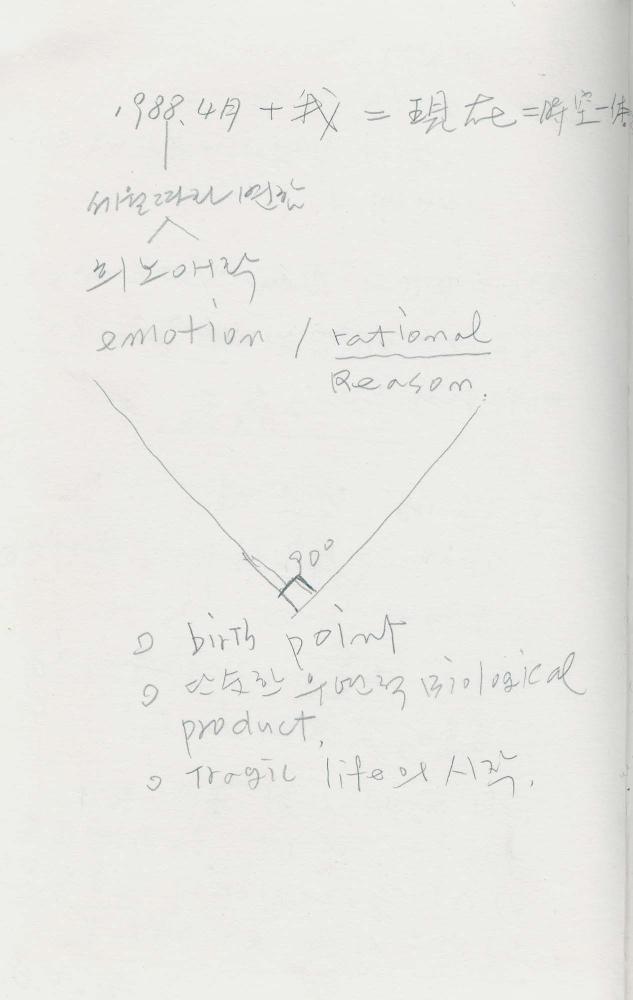 1988. 4月 + 我 = 現在 = 時空一体
세월따라 변함
희노애락
emotion / rational
Reason.
90°
birth point
단순한 우연적 Biological
product,
Tragic life의 시작.